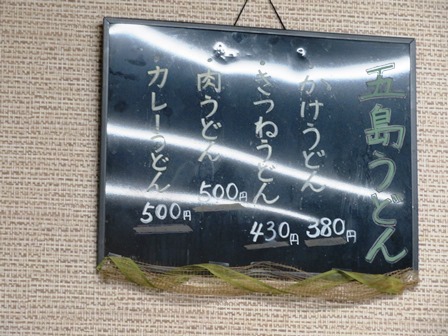 五島うどん
・かけうどん 380円
・きつねうどん 430円
・肉うどん 500円
・カレーうどん 500円